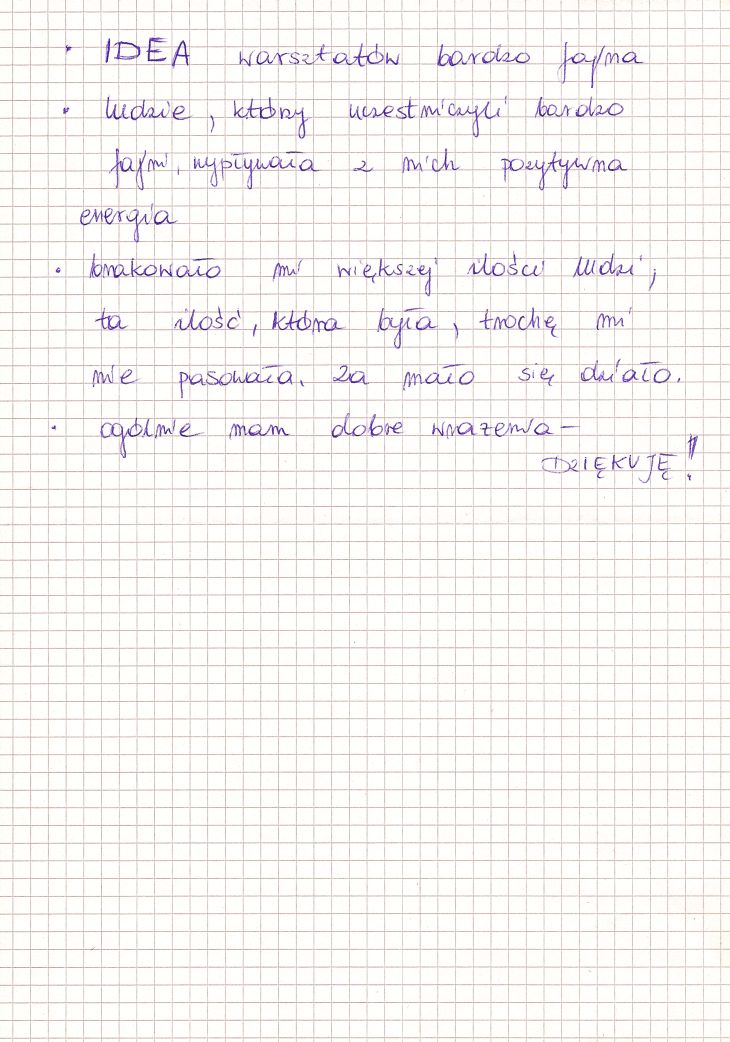 • IDEA warsztatów bardzo fajna
• ludzie, którzy uczestniczyli bardzo
fajni, wypływała z nich pozytywna
energia
• brakowało mi większej ilości ludzi,
ta ilość, która była, trochę mi
nie pasowała. Za mało się działo.
• ogólnie mam dobre wrażenia –
DZIĘKUJĘ!